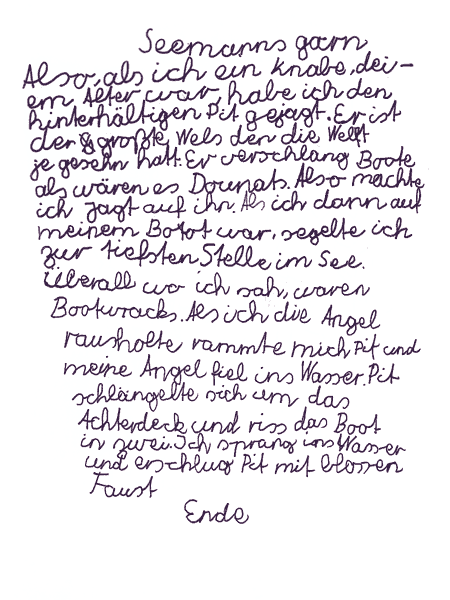 Seemanns garn
Also, als ich ein knabe, dei-
em Alter war, habe ich den
hinterhältigen Pit gejagt. Er ist
der größte Wels den die Welt
je gesehn hatt. Er verschlang Boote
als wären es Dounats. Also machte
ich jagt auf ihn. Als ich dann auf
meinem Boot war, segelte ich
zur tiefsten Stelle im See.
Überall wo ich sah, waren
Bootwracks. Als ich die Angel
rausholte rammte mich Pit und
meine Angel fiel ins Wasser. Pit
schlängelte sich um das
Achterdeck und riss das Boot
in zwei. Ich sprang ins Wasser
und erschlug Pit mit blossen
Faust
Ende